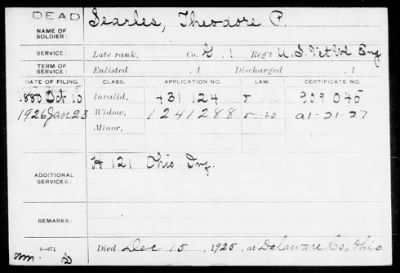 DEAD
NAME OF SOLDIER: Searles, Theodore P.
SERVICE: Late rank, Co. G, 1 Reg't U.S. Vet Vol Eng
TERM OF SERVICE: Enlisted , 1 Discharged , 1
DATE OF FILING. CLASS. APPLICATION NO. LAW. CERTIFICATE NO.
1880 Oct 15 Invalid, 431124 909045
1926 Jan 23 Widow, 1241288 a1-21-27
Minor,
ADDITIONAL SERVICES: H 121 Ohio Inf.
REMARKS:
Died Dec 15, 1925, at Delaware Co, Ohio